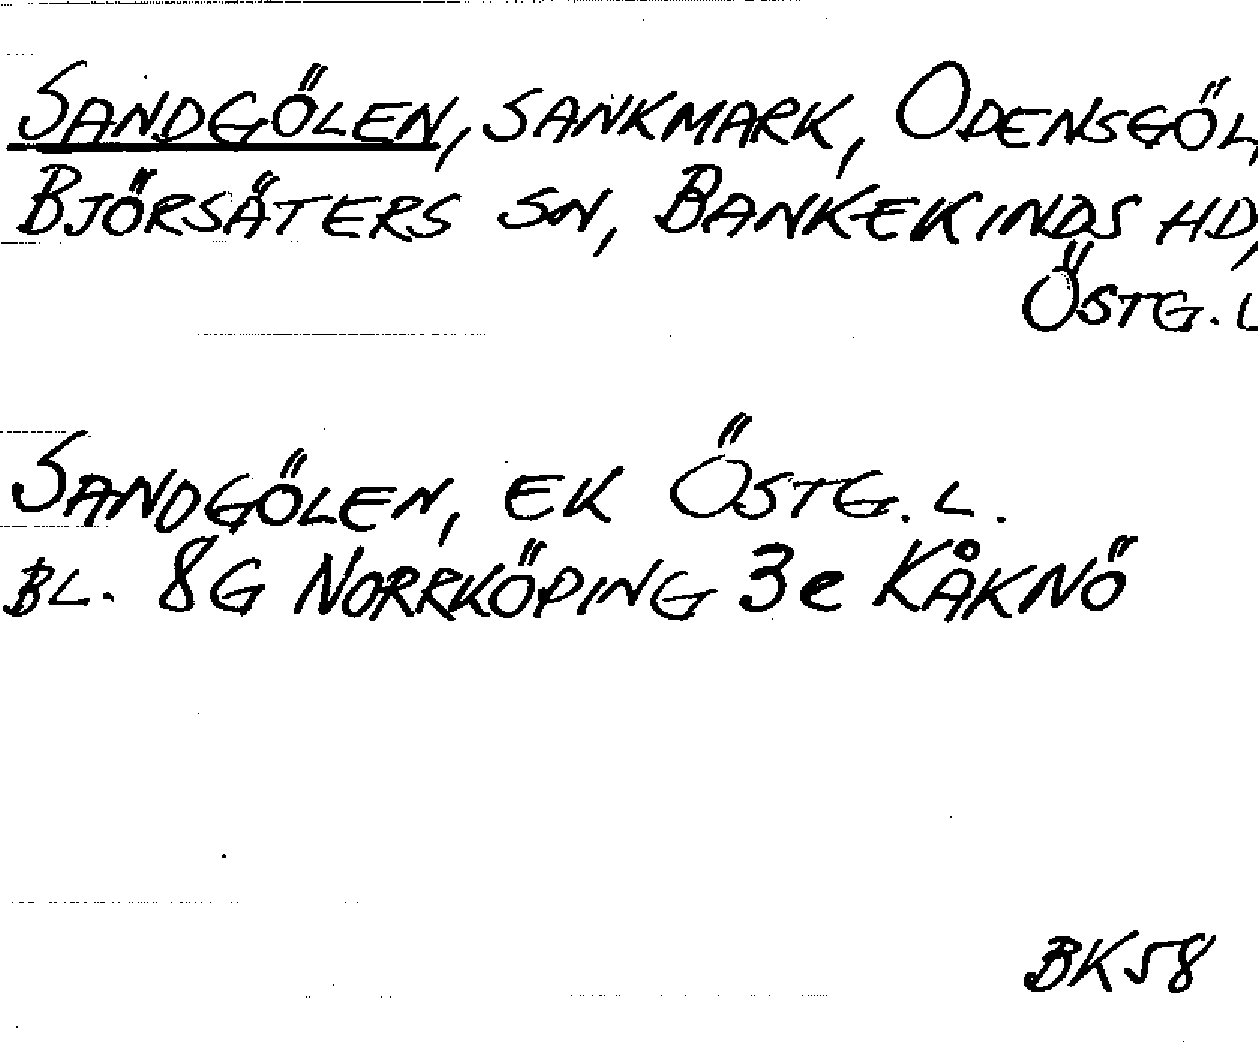 SANDGÖLEN, SANKMARK, ODENSGÖL,
BJÖRSÄTERS SN, BANKEKINDS HD,
ÖSTG. L
SANDGÖLEN, EK ÖSTG. L.
BL. 8G NORRKÖPING 3e KÅKNÖ
BK58